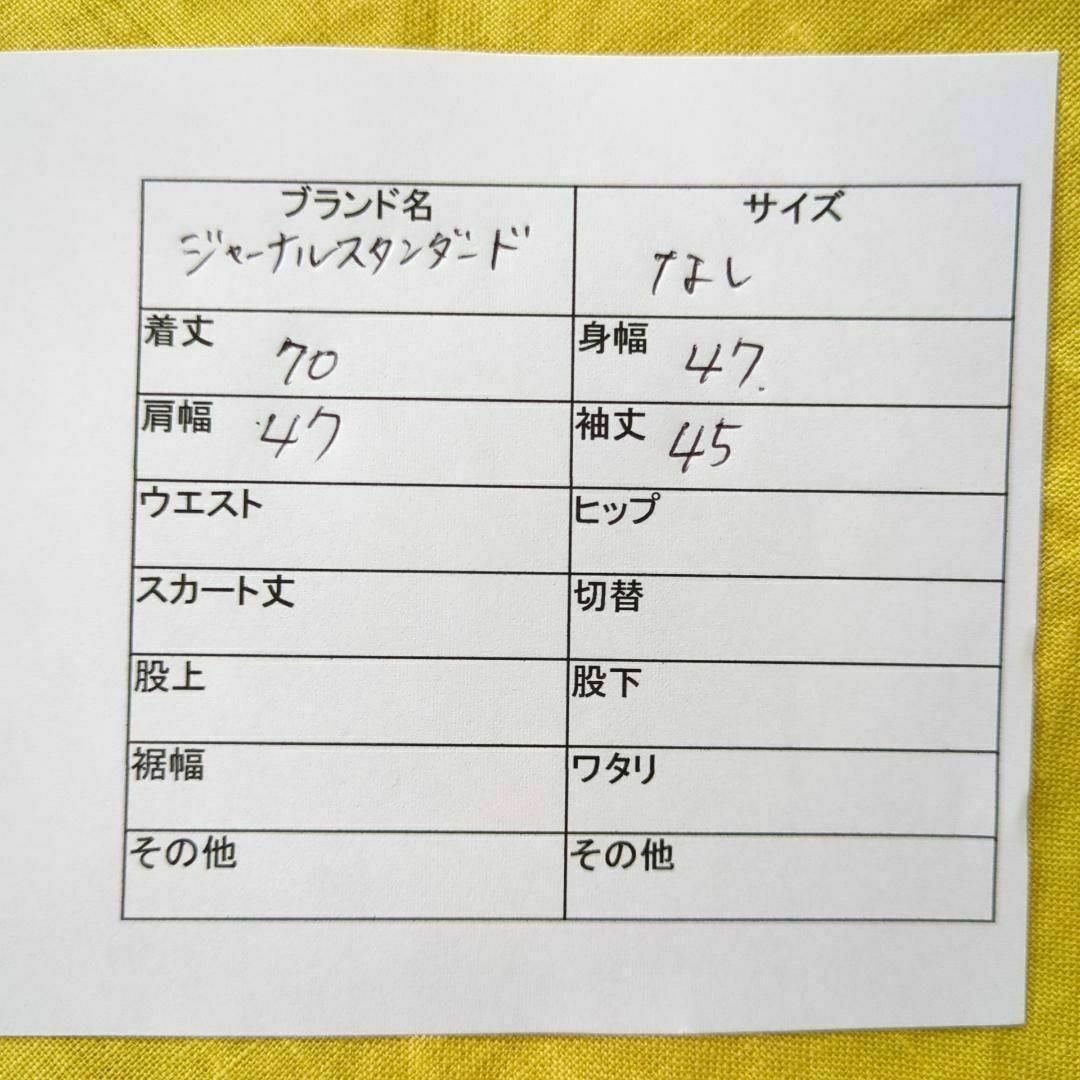 ブランド名 サイズ
ジャーナルスタンダード なし
着丈 70 身幅 47.
肩幅 47 袖丈 45
ウエスト ヒップ
スカート丈 切替
股上 股下
裾幅 ワタリ
その他 その他